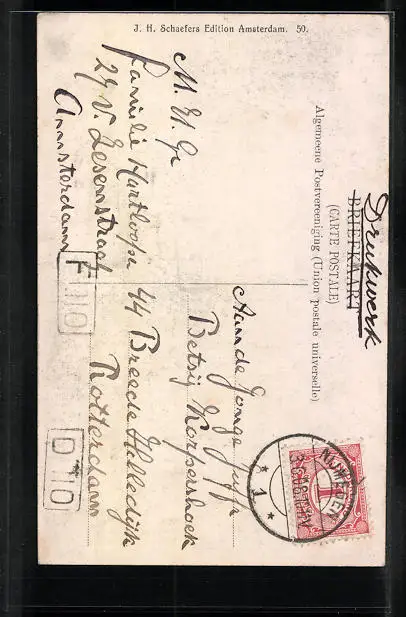 J. H. Schaefers Edition Amsterdam. 50.
Drukwerk
BRIEFKAART
(CARTE POSTALE)
Algemeene Postvereeniging (Union postale universelle)
M. M. Gr
Familie Hartloofse
29 V. Lesenstraat
Amsterdam
Aan de Jonge Juffr
Betsij Korpershoek
44 Breede Hilledijk
Rotterdam
NIJMEGEN
1
1
F 110
D 110